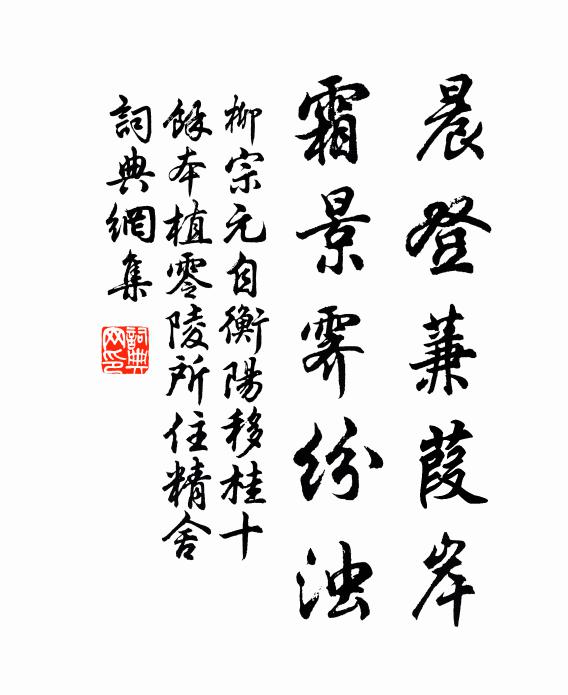 晨登蒹葭岸
霜景霁纷浊
柳宗元自衡陽移桂十
餘本植零陵所住精舍
詞典網集
詞典
网印